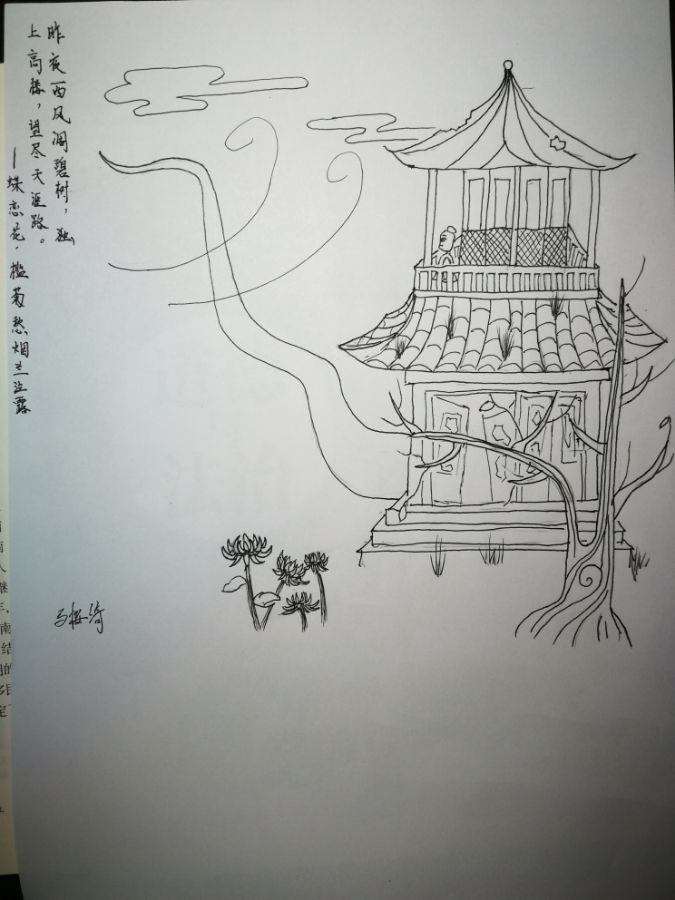 昨夜西风凋碧树，独
上高楼，望尽天涯路。
—蝶恋花·槛菊愁烟兰泣露